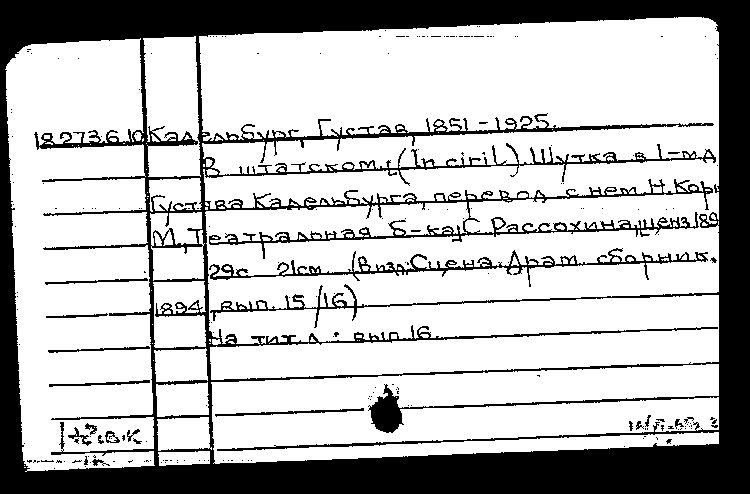 18.273.6.10 Кадельбург, Густав, 1851-1925.
В штатском. (In civil). Шутка в 1-м д
Густава Кадельбурга, перевод с нем. Н. Кор
М., Театральная б-ка С. Рассохина, ценз. 189
29с 21см (В изд: Сцена. Драм. сборник.
1894, вып. 15/16).
На тит. л: вып. 16.